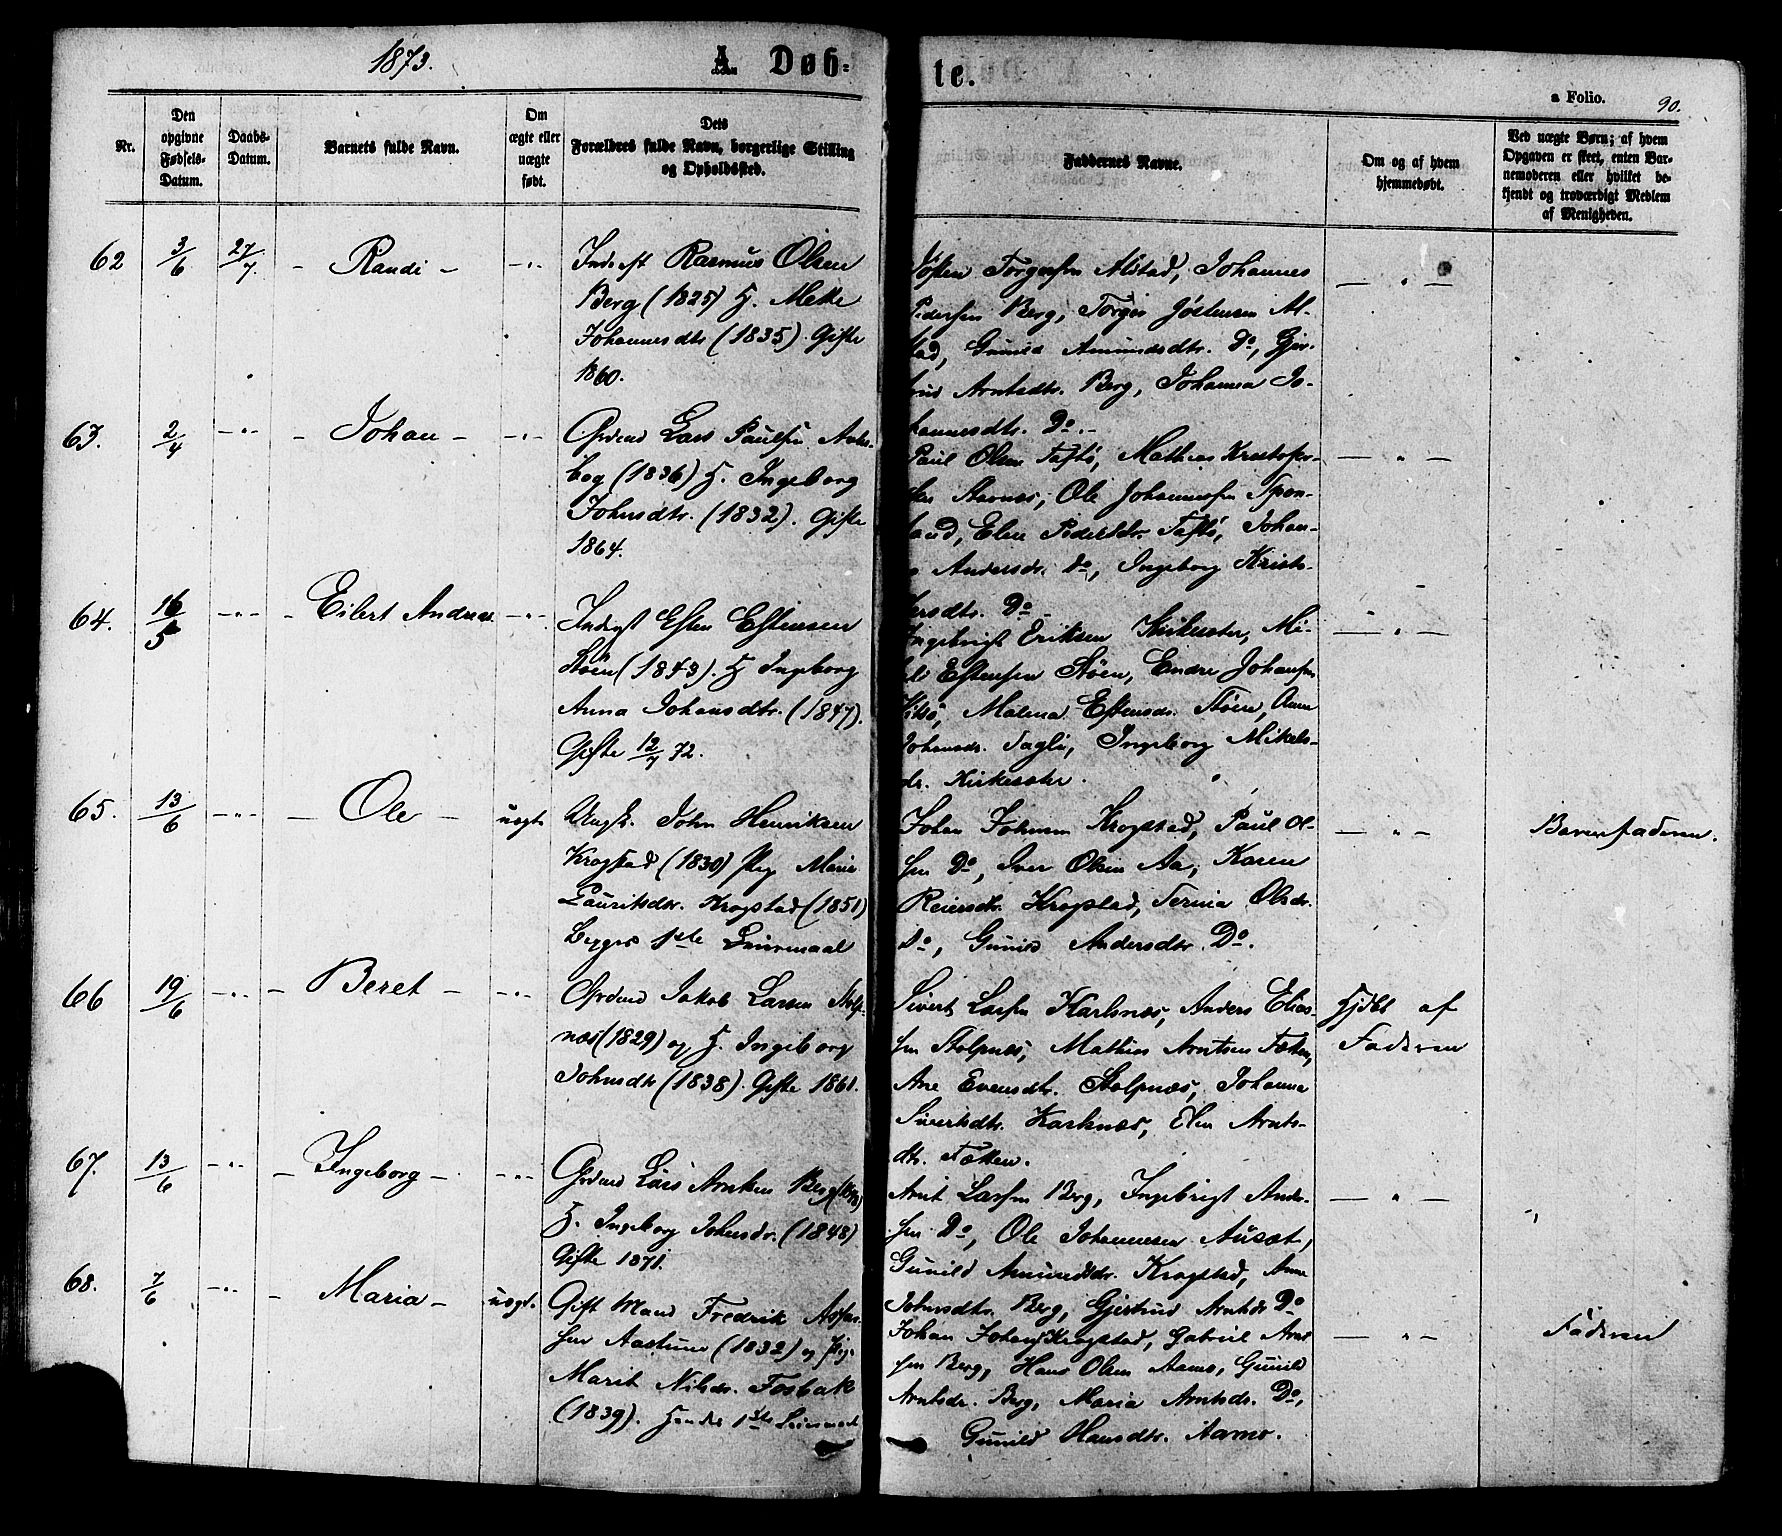 1873.
A. Døb-
te.
a Folio. 90.
Nr.
Den
opgivne
Fødsels-
Datum.
Daabs-
Datum.
Barnets fulde Navn.
Om
ægte eller
uægte
født.
Dets
Forældres fulde Navn, borgerlige Stilling
og Opholdssted.
Faddernes Navne.
Om og af hvem
hjemmedøbt.
Ved uægte Børn; af hvem
Opgaven er skeet, enten Bar-
nemoderen eller hvilket be-
kjendt og troværdigt Medlem
af Menigheden.
62 3/6 27/7 - Randi - -"-
Inderst Rasmus Olsen
Berg (1825) H. Mette
Johannesdtr (1835). Gifte
1860.
Jösten Torgersen Alstad, Johannes
Pedersen Berg, Torger Jöstensen Al-
stad, Gunild Amundsdtr. Do, Gjer-
trud Arntsdtr. Berg, Johanna Jo-
hannesdtr. Do.-
- " -
63. 2/4 -"- - Johan - -"-
Grdmd Lars Paulsen
(1836) H. Ingeborg
Johnsdtr. (1832). Gifte
1864.
Paul Olsen Taftö, Mathias Kristofer-
sen Aarnes, Ole Johannessen
Elen Pedersdtr. Taftö, Johan-
Andersdr. Do, Ingeborg Kristo-
fersdtr. Do
- " -
64. 16/5 -"- - Eilert Andreas -"-
Inderst Esten Estensen
Stöen (1843). H Ingeborg
Anna Johansdtr. (1847).
Gifte 12/7 72.
Ingebrigt Eriksen Kirkesæter, Mi-
kel Estensen Stöen, Endre Johansen
Malena Estensdr. Stöen, Anne
Johansdr. Ingeborg Mikels-
dr. Kirkesæter.
- " -
65. 13/6 -"- - Ole - uægt.
Ungk. John Henriksen
Krogstad (1830) Pig Marie
Lauritsdtr. Krogstad (1851)
Begges 1ste Leiermaal
Johan Johnsen Krogstad, Paul Ol-
sen Do, Iver Olsen Aa, Karen
Reiersdtr Krogstad, Serina Olsdr.
Do, Gunild Andersdtr. Do.
- " -
Barnefaderen.
66 19/6 -"- - Beret - -"-
Grdmd Jakob Larsen Stolp-
næs (1829) og H. Ingeborg
Johnsdtr (1838). Gifte 1861.
Sivert Larsen Karlsnæs, Anders Elias-
sen Stolpnæs, Mathias Arntsen Fætten,
Ane Evensdtr. Stolpnæs, Johanna
Sivertsdtr. Karlsnæs, Elen Arnts-
dtr. Fætten.
Hjdbt af
Faderen
67. 13/6 -"- - Ingeborg - -"-
Grdmd Lars Arntsen Berg
H. Ingeborg Johnsdr. (1848)
Gifte 1871.
Arnt Larsen Berg, Ingebrigt Ander-
sen Do, Ole Johannesen Ausæt,
Gunild Amundsdr. Krogstad, Anne
Johnsdtr. Berg, Gjertrud Arntsdr Do
- " -
68. 7/6 -"- - Maria - uægt.
Gift Mand Fredrik
sen Aastun (1832) og Pige
Marit Nilsdr. Fosbak
(1839). Hendes 1ste Leiermaal
Johan Johansen Krogstad, Gabriel Arnt
sen Berg, Hans Olsen Aamo, Gunild
Arntsdr. Berg, Maria Arntsdr. Do,
Gunild Hansdtr. Aamo.
- " -
Faderen